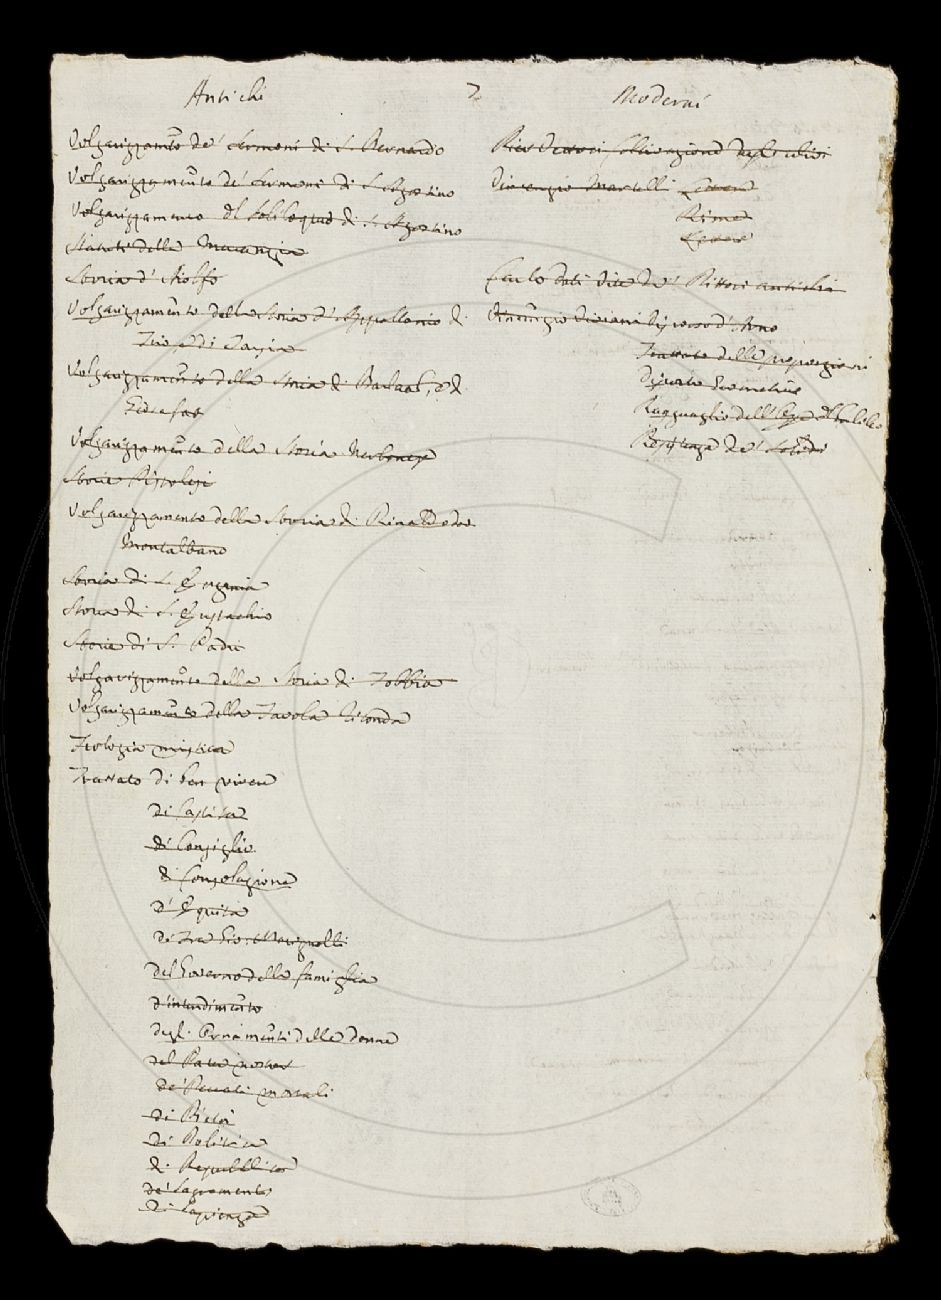 Antichi
Moderni
Volgarizzamto de' Sermoni di S. Bernardo
Volgarizzamento de' Sermoni di S. Agostino
Volgarizzamento del Soliloquio di S. Agostino
Statuti della Mercanzia
Storia d'Aiolfo
Volgarizzamento della Storia d'Appollonio di
Tiro, e di Tarsia
Volgarizzamento della Storia di Barlaam, e di
Giosefat
Volgarizzamento della Storia Nerbonese
Storie Pistolesi
Volgarizzamento della Storia di Rinaldo da
Montalbano
Storia di S. Eugenia
Storia di S. Eustachio
Storie di S. Padri
Volgarizzamento della Storia di Tobbia
Volgarizzamento della Tavola Ritonda
Teologia mistica
Trattato di ben vivere
di Castità
di Consiglio
di Consolazione
d'Equità
di Fra Gio: Marignolli
del Governo della famiglia
d'intendimento
degli Ornamenti delle donne
del Pater noster
de' Peccati mortali
di Pietà
di Politica
di Repubblica
de' Sagramenti
di Sapienza
Pier Vettori Coltivazione degli ulivi
Vincenzio Martelli Lettere
Rime
Lettere
Carlo Dati Vite de' Pittori antichi
Vincenzio Viviani Discorso d'Arno
Trattato delle proporzioni
Divinto Geometrico
Ragguaglio dell'Opere del Galileo
Resistenza de' Solidi